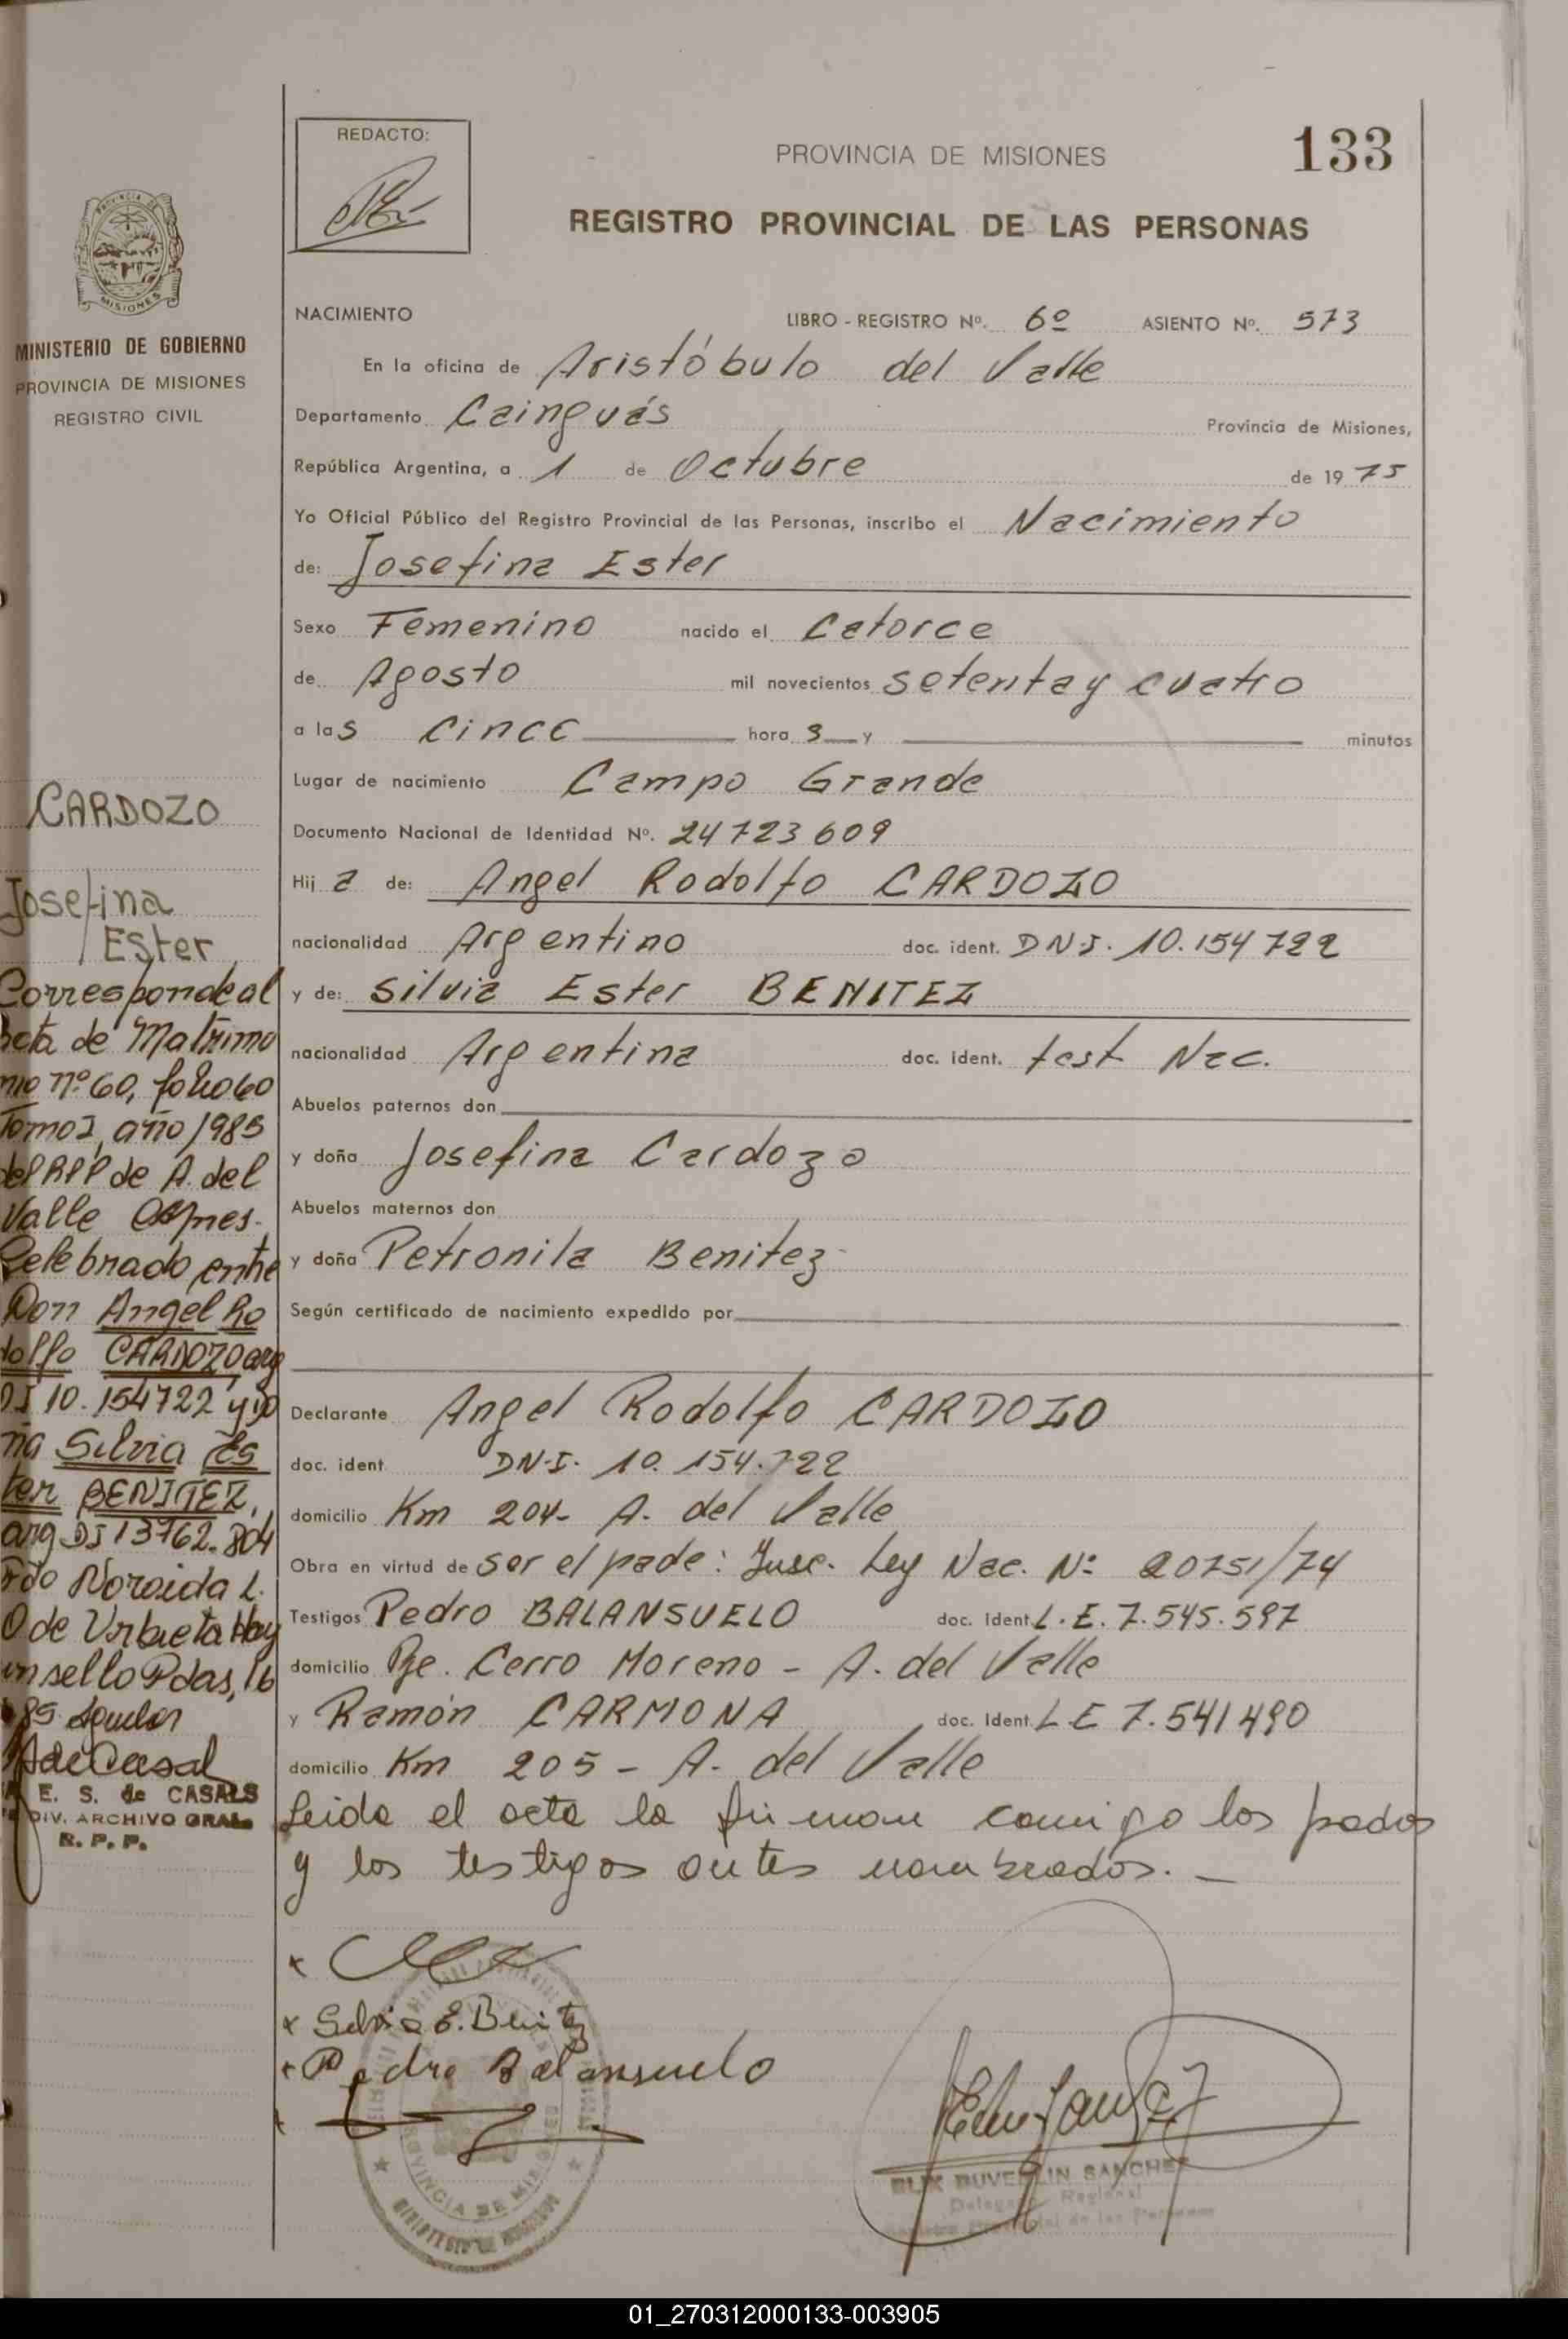 REDACTO:
PROVINCIA DE MISIONES
133
REGISTRO PROVINCIAL DE LAS PERSONAS
PROVINCIA DE
MISIONES
MINISTERIO DE GOBIERNO
PROVINCIA DE MISIONES
REGISTRO CIVIL
NACIMIENTO LIBRO - REGISTRO Nº. 6º ASIENTO Nº. 573
En la oficina de Aristóbulo del Valle
Departamento Cainguás Provincia de Misiones,
República Argentina, a 1 de Octubre de 1975
Yo Oficial Público del Registro Provincial de las Personas, inscribo el Nacimiento
de: Josefina Ester
Sexo Femenino nacido el Catorce
de Agosto mil novecientos setenta y cuatro
a las Cinco hora s y minutos
Lugar de nacimiento Campo Grande
Documento Nacional de Identidad Nº. 24723609
Hij a de: Angel Rodolfo CARDOZO
nacionalidad Argentino doc. ident. DN-I. 10.154722
y de: Silvia Ester BENITEZ
nacionalidad Argentina doc. ident. test Nac.
Abuelos paternos don
y doña Josefina Cardozo
Abuelos maternos don
y doña Petronila Benitez
Según certificado de nacimiento expedido por
Declarante Angel Rodolfo CARDOZO
doc. ident. DN-I. 10.154.722
domicilio Km 204- A. del Valle
Obra en virtud de ser el pade: Insc. Ley Nac. Nº 20751/74
Testigos Pedro BALANSUELO doc. ident. L.E. 7.545.597
domicilio Pje. Cerro Moreno - A. del Valle
y Ramón CARMONA doc. ident. LE 7.541490
domicilio Km 205 - A. del Valle
Leida el acta la firman conmigo los padres
y los testigos antes nombrados.-
CARDOZO
Josefina
Ester
Corresponde al
acta de Matrimo
nio nº 60, folio 60
Tomo I, año 1985
del RPP de A. del
Valle Mnes.
Celebrado entre
Don Angel Ro
dolfo CARDOZO arg
DI 10.154722 y Do
ña Silvia Es
ter BENITEZ,
arg DI 13762.804
Fdo Noroida L.
O de Urbieta Hay
un sello Pdas, 16
85
E. S. de CASALS
DIV. ARCHIVO GRAL.
R. P. P.
x
x Silvia E. Benitez
x Pedro Balansuelo
PROVINCIA DE MISIONES
SANCHEZ
Delegado Regional
Registro Provincial de las Personas
01_270312000133-003905